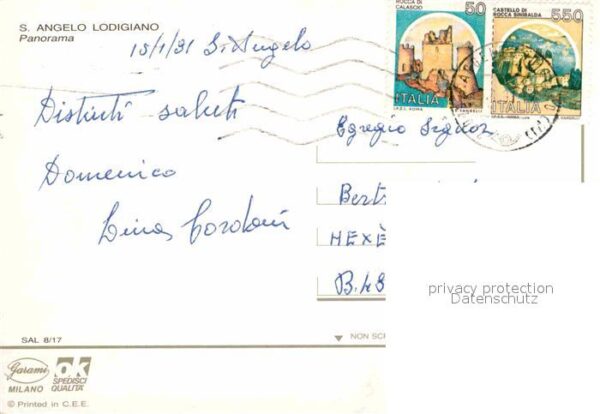 S. ANGELO LODIGIANO
Panorama
15/1/91 S. Angelo
Distinti saluti
Domenico
Lina Cordoni
ROCCA DI
CALASCIO
50
ITALIA
CASTELLO DI
ROCCA SINIBALDA
550
ITALIA
Egregio Signor
Bert
HEXÈ
B.48
privacy protection
Datenschutz
SAL 8/17
NON SCR
Garami
MILANO
OK
SPEDISCI
QUALITÀ
© Printed in C.E.E.